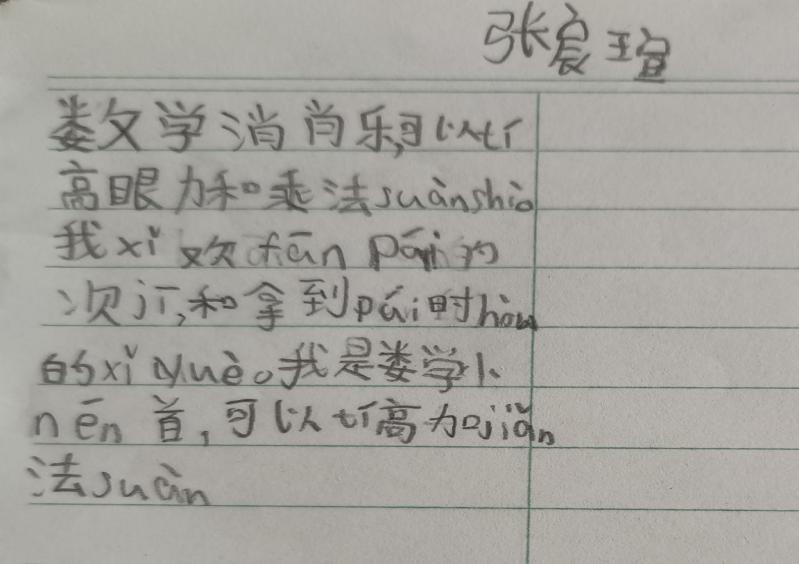 张宸瑄
数学消肖乐,可以tí
高眼力和乘法suànshiò
我xǐ欢fān pái的
次jī,和拿到pái时hòu
的xǐ yuè。我是娄学小
nēn首,可以tí高加jiǎn
法suàn